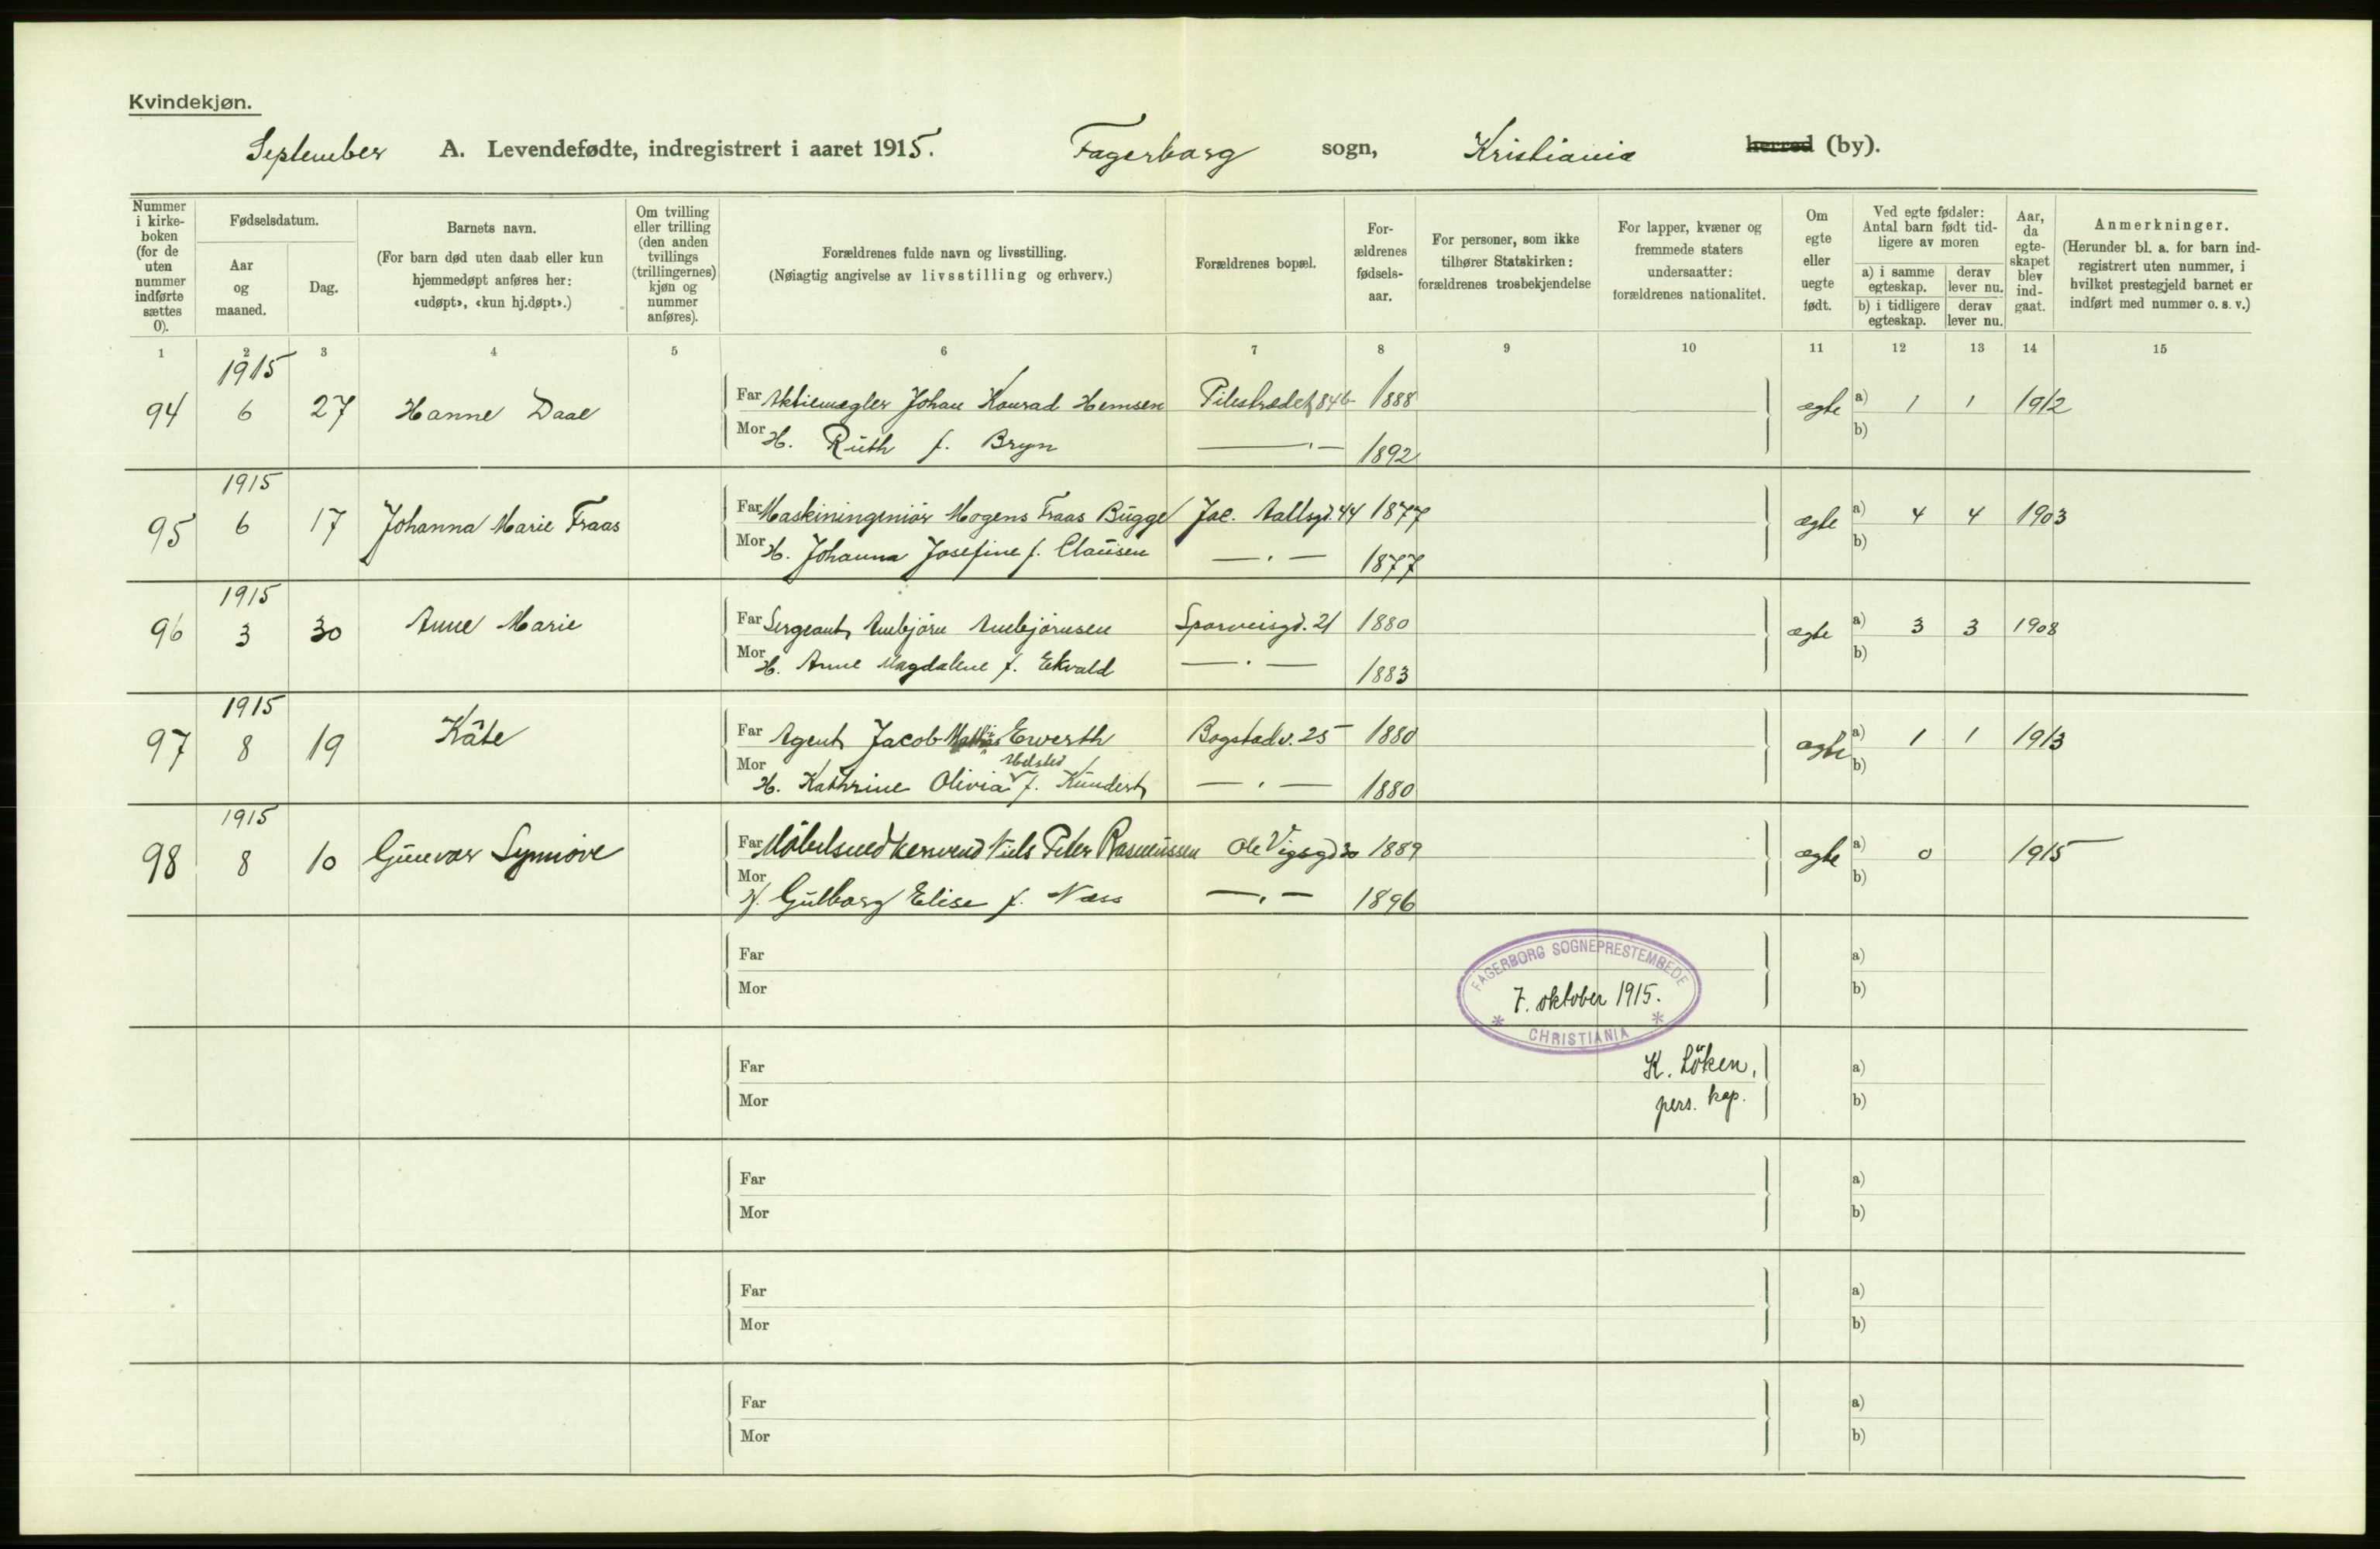 Kvindekjøn.
September A. Levendefødte, indregistrert i aaret 1915. Fagerborg sogn, Kristiania herred (by).
Nummer i kirke- boken (for de uten nummer indførte sættes 0).
Fødselsdatum.
Aar og maaned.
Dag.
Barnets navn.
(For barn død uten daab eller kun hjemmedøpt anføres her: «udøpt», «kun hj.døpt».)
Om tvilling eller trilling (den anden tvillings (trillingernes) kjøn og nummer anføres).
Forældrenes fulde navn og livsstilling.
(Nøiagtig angivelse av livsstilling og erhverv.)
Forældrenes bopæl.
For- ældrenes fødsels- aar.
For personer, som ikke tilhører Statskirken: forældrenes trosbekjendelse
For lapper, kvæner og fremmede staters undersaatter: forældrenes nationalitet.
Om egte eller uegte født.
Ved egte fødsler: Antal barn født tid- ligere av moren
a) i samme egteskap.
derav lever nu.
b) i tidligere egteskap.
derav lever nu.
Aar, da egte- skapet blev ind- gaat.
Anmerkninger.
(Herunder bl. a. for barn ind- registrert uten nummer, i hvilket prestegjeld barnet er indført med nummer o. s. v.)
1 2 3 4 5 6 7 8 9 10 11 12 13 14 15
1915
94 6 27 Hanne Daae Far Aktiemægler Johan Konrad Hemsen Pilestrædet 84b 1888 ægte a) 1 1 1912
Mor H. Ruth f. Bryn —〃— 1892 b)
1915
95 6 17 Johanna Marie Fraas Far Maskiningeniør Mogens Fraas Bugge Jac. Aallsgd. 44 1877 ægte a) 4 4 1903
Mor H. Johanna Josefine f. Clausen —〃— 1877 b)
1915
96 3 30 Anne Marie Far Sergeant Anebjørn Anebjørnsen Sporveisgd. 21 1880 ægte a) 3 3 1908
Mor H. Anne Magdalene f. Ekvald —〃— 1883 b)
1915
97 8 19 Käte Far Agent Jacob Mathias Ewerth Bogstadv. 25 1880 ægte a) 1 1 1913
Mor H. Kathrine Olivia f. Kundert —〃— 1880 b)
1915
98 8 10 Gunvor Synnøve Far Møbelsnedkersvend Niels Peter Rasmussen Ole Vigsgd 30 1889 ægte a) 0 1915
Mor H. Gulborg Elise f. Næss —〃— 1896 b)
Far a)
Mor b)
FAGERBORG SOGNEPRESTEMBEDE
7. oktober 1915.
* CHRISTIANIA *
Far K. Löken, a)
Mor pers. kap. b)
Far a)
Mor b)
Far a)
Mor b)
Far a)
Mor b)